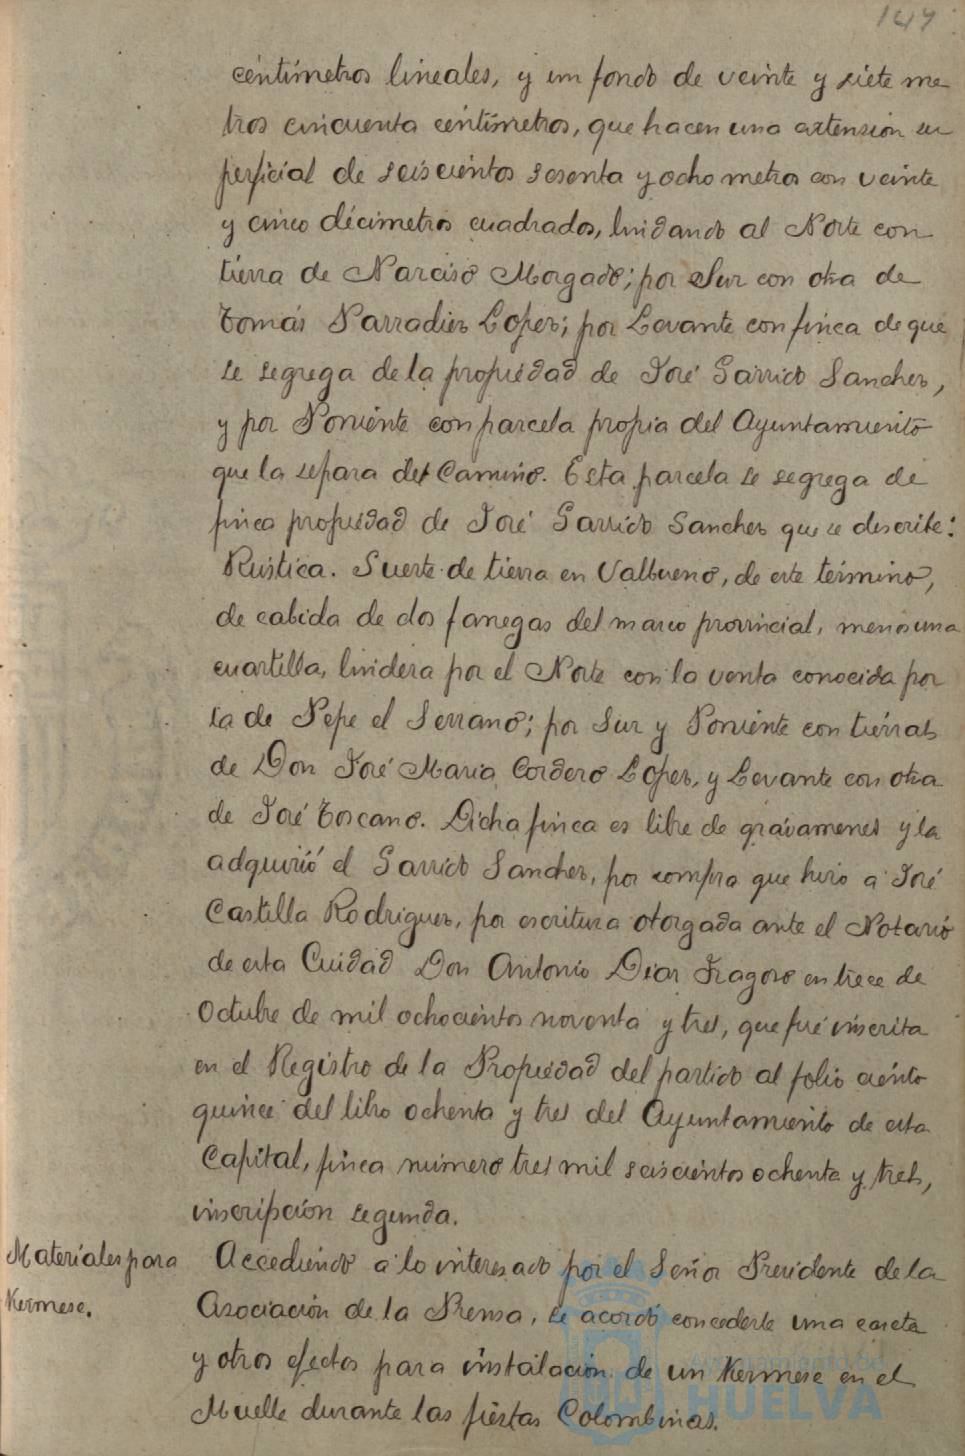 147
centímetros lineales, y un fondo de veinte y siete me
tros cincuenta centímetros, que hacen una extensión su
perficial de seiscientos sesenta y ocho metros con veinte
y cinco décimetros cuadrados, lindando al Norte con
tierra de Narciso Morgado; por Sur con otra de
Tomás Parradier Lopez; por Levante con finca de que
se segrega de la propiedad de José Garrido Sanchez,
y por Poniente con parcela propia del Ayuntamiento
que la separa del Camino. Esta parcela se segrega de
finca propiedad de José Garrido Sanchez que se describe:
Rústica. Suerte de tierra en Valbueno, de este término,
de cabida de dos fanegas del marco provincial, menos una
cuartilla, lindera por el Norte con la venta conocida por
la de Pepe el Serrano; por Sur y Poniente con tierras
de Don José Maria Cordero Lopez, y Levante con otra
de José Toscano. Dicha finca es libre de gravamenes y la
adquirió el Garrido Sanchez, por compra que hizo a José
Castilla Rodriguez, por escritura otorgada ante el Notario
de esta Cuidad Don Antonio Diaz Fragoso en trece de
Octubre de mil ochocientos noventa y tres, que fué inscrita
en el Registro de la Propiedad del partido al folio ciento
quince del libro ochenta y tres del Ayuntamiento de esta
Capital, finca número tres mil seiscientos ochenta y tres,
inscripción segunda.
Materiales para
Kermese.
Accediendo a lo interesado por el Señor Presidente de la
Asociación de la Prensa, se acordó concederle una caseta
y otros efectos para instalación de un Kermese en el
Muelle durante las fiestas Colombinas.
Ayuntamiento de
HUELVA